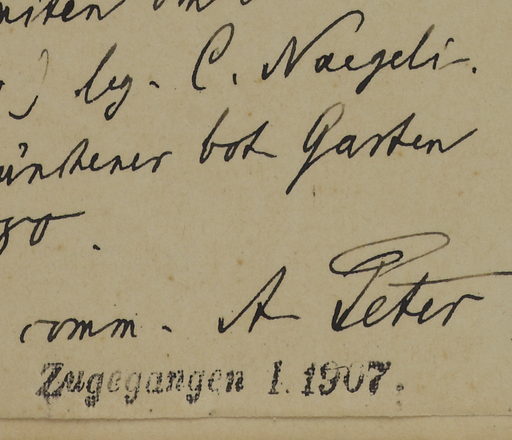 ) leg. C. Naegeli.
ünchener bot Garten
comm. A Peter
Zugegangen 1. 1907.